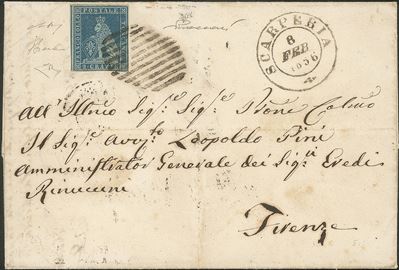 FRANCOBOLLO POSTALE TOSCANO
6 CRAZIE
SCARPERIA
8
FEB
1856
All'Illmo Sig.e Sig.e Prone Colmo
Il Sig.e Avv.to Leopoldo Pini
Amministrator Generale dei Sig.ri Eredi
Rinuccini
Firenze